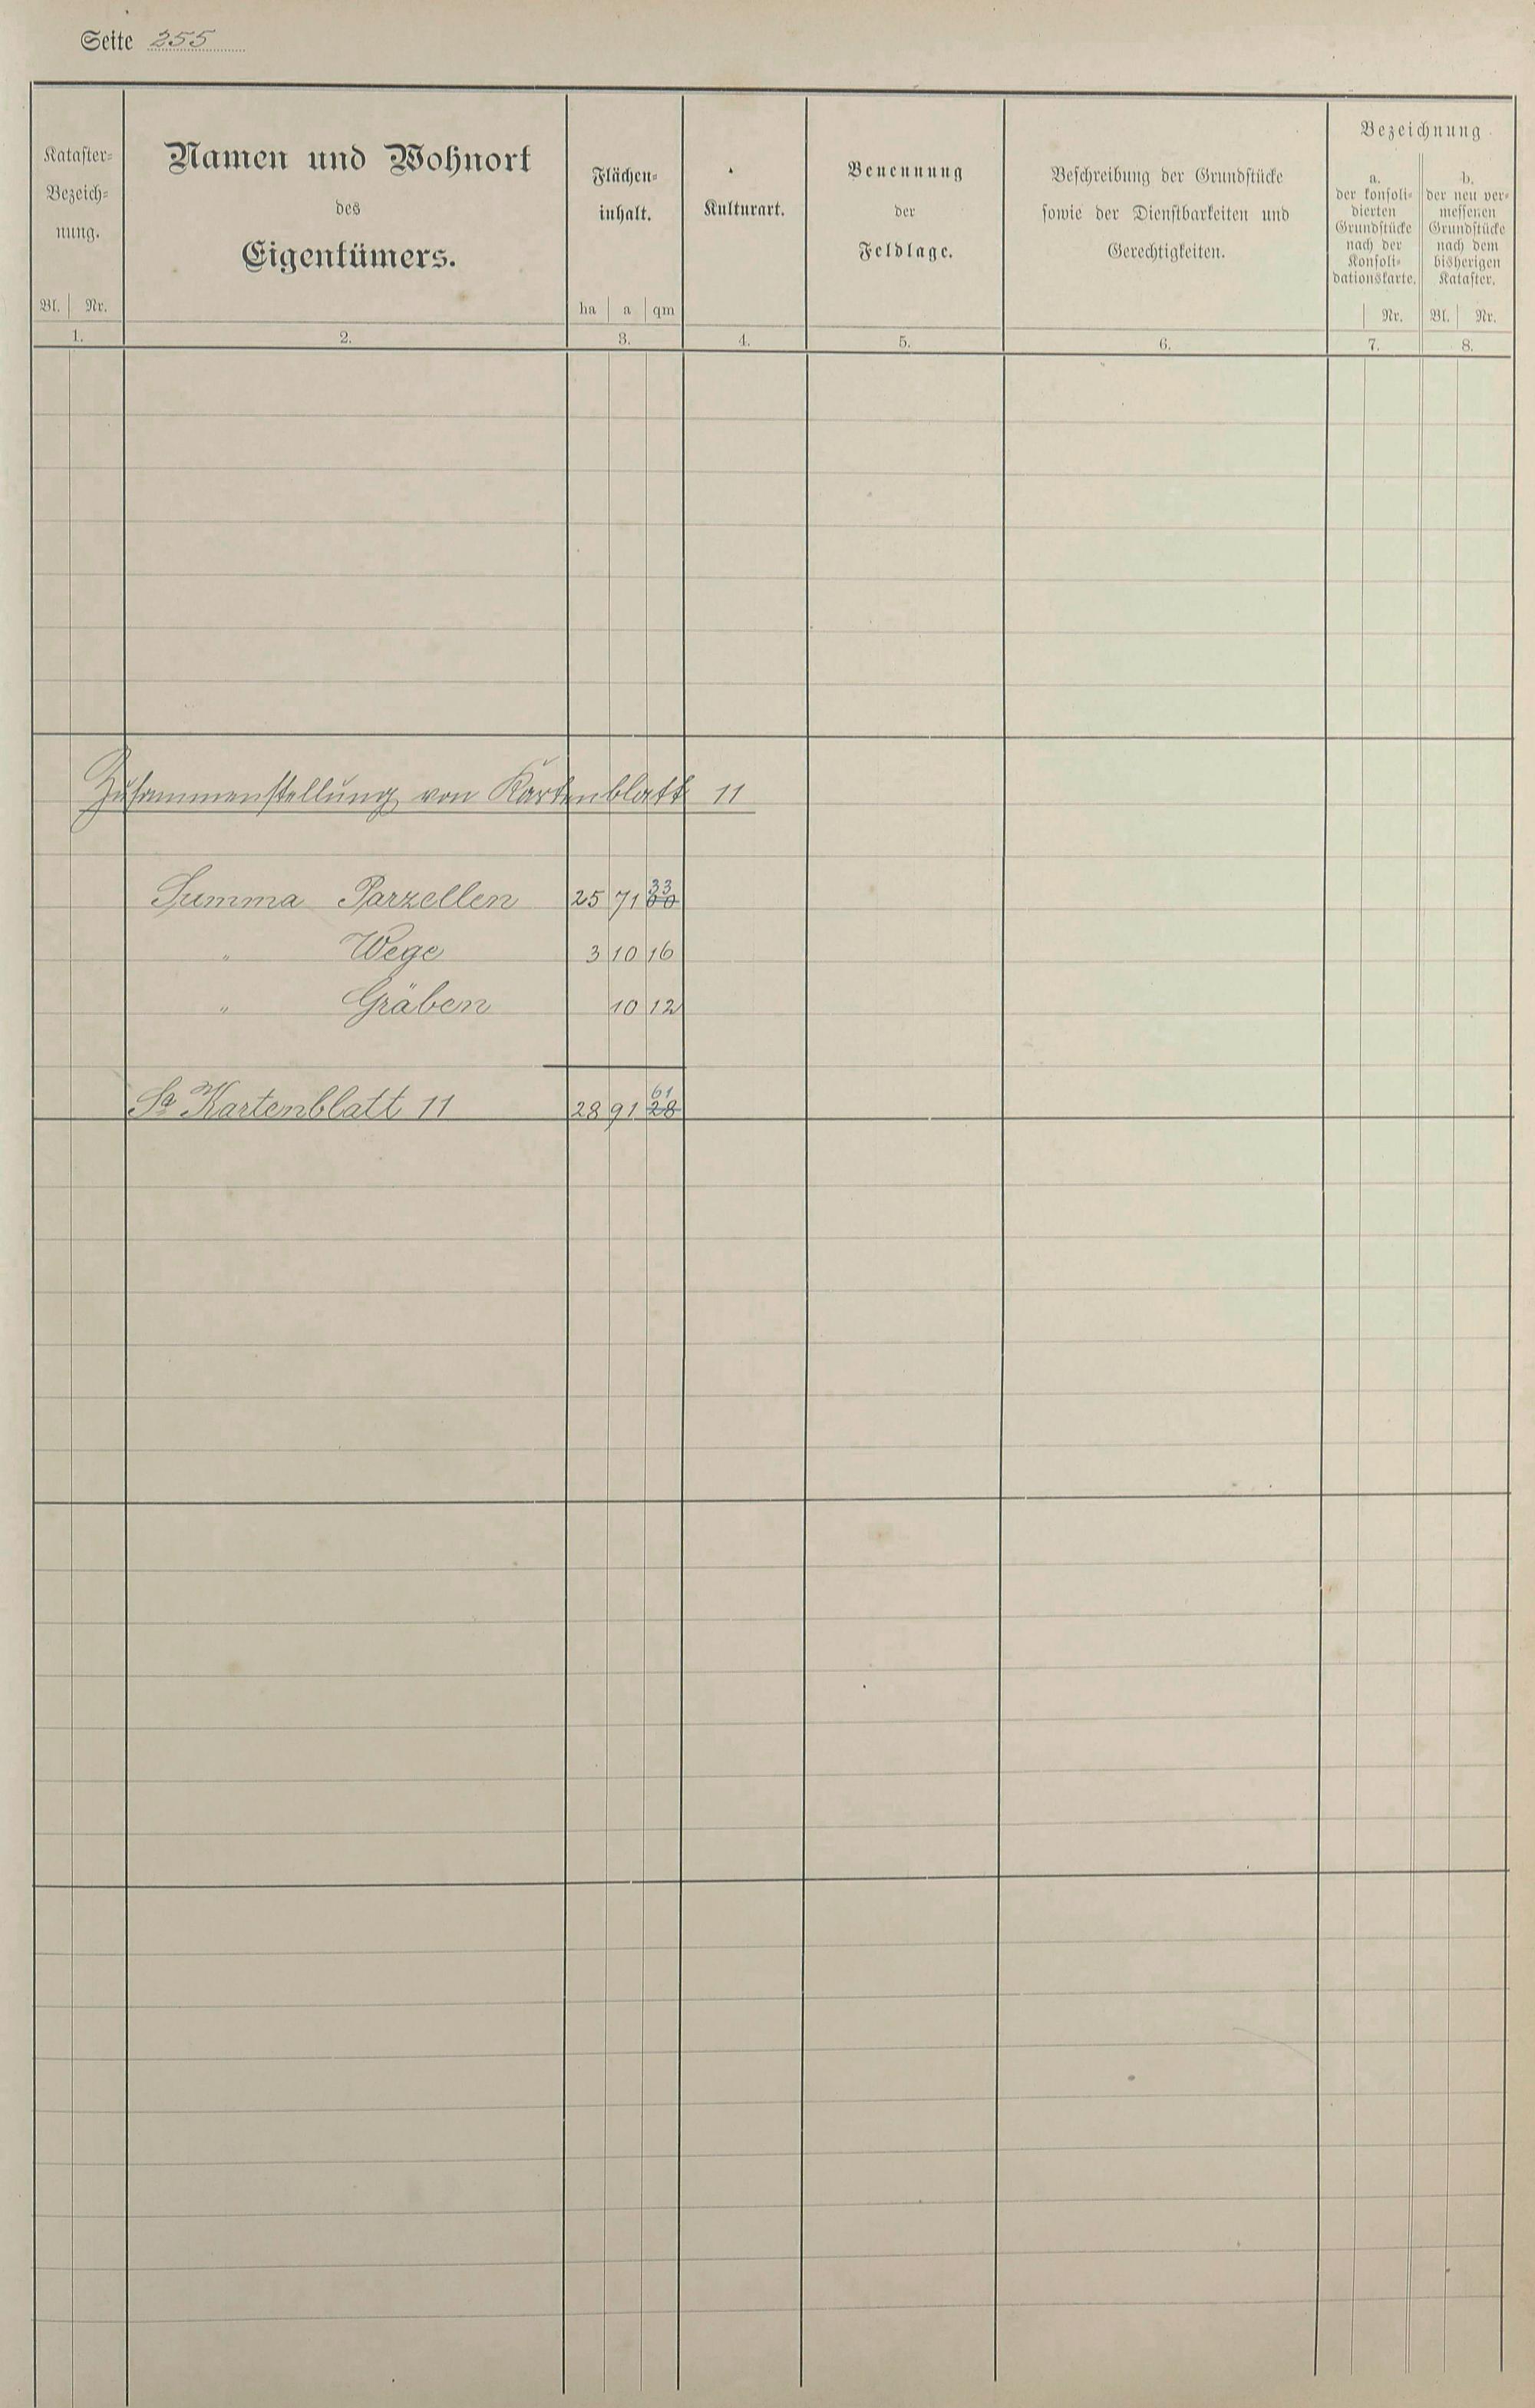 Seite 255
Kataster-
Bezeich-
nung.
Bl. Nr.
1.
Namen und Wohnort
des
Eigentümers.
2.
Flächen-
inhalt.
ha a qm
3.
Kulturart.
4.
Benennung
der
Feldlage.
5.
Beschreibung der Grundstücke
sowie der Dienstbarkeiten und
Gerechtigkeiten.
6.
Bezeichnung
a.
der konsoli-
dierten
Grundstücke
nach der
Konsoli-
dationskarte.
Nr.
7.
b.
der neu ver-
messenen
Grundstücke
nach dem
bisherigen
Kataster.
Bl. Nr.
8.
Zusammenstellung von Kartenblatt 11
33
Summa Parzellen 25 71 00
" Wege 3 10 16
" Gräben 10 12
61
Sa Kartenblatt 11 28 91 28